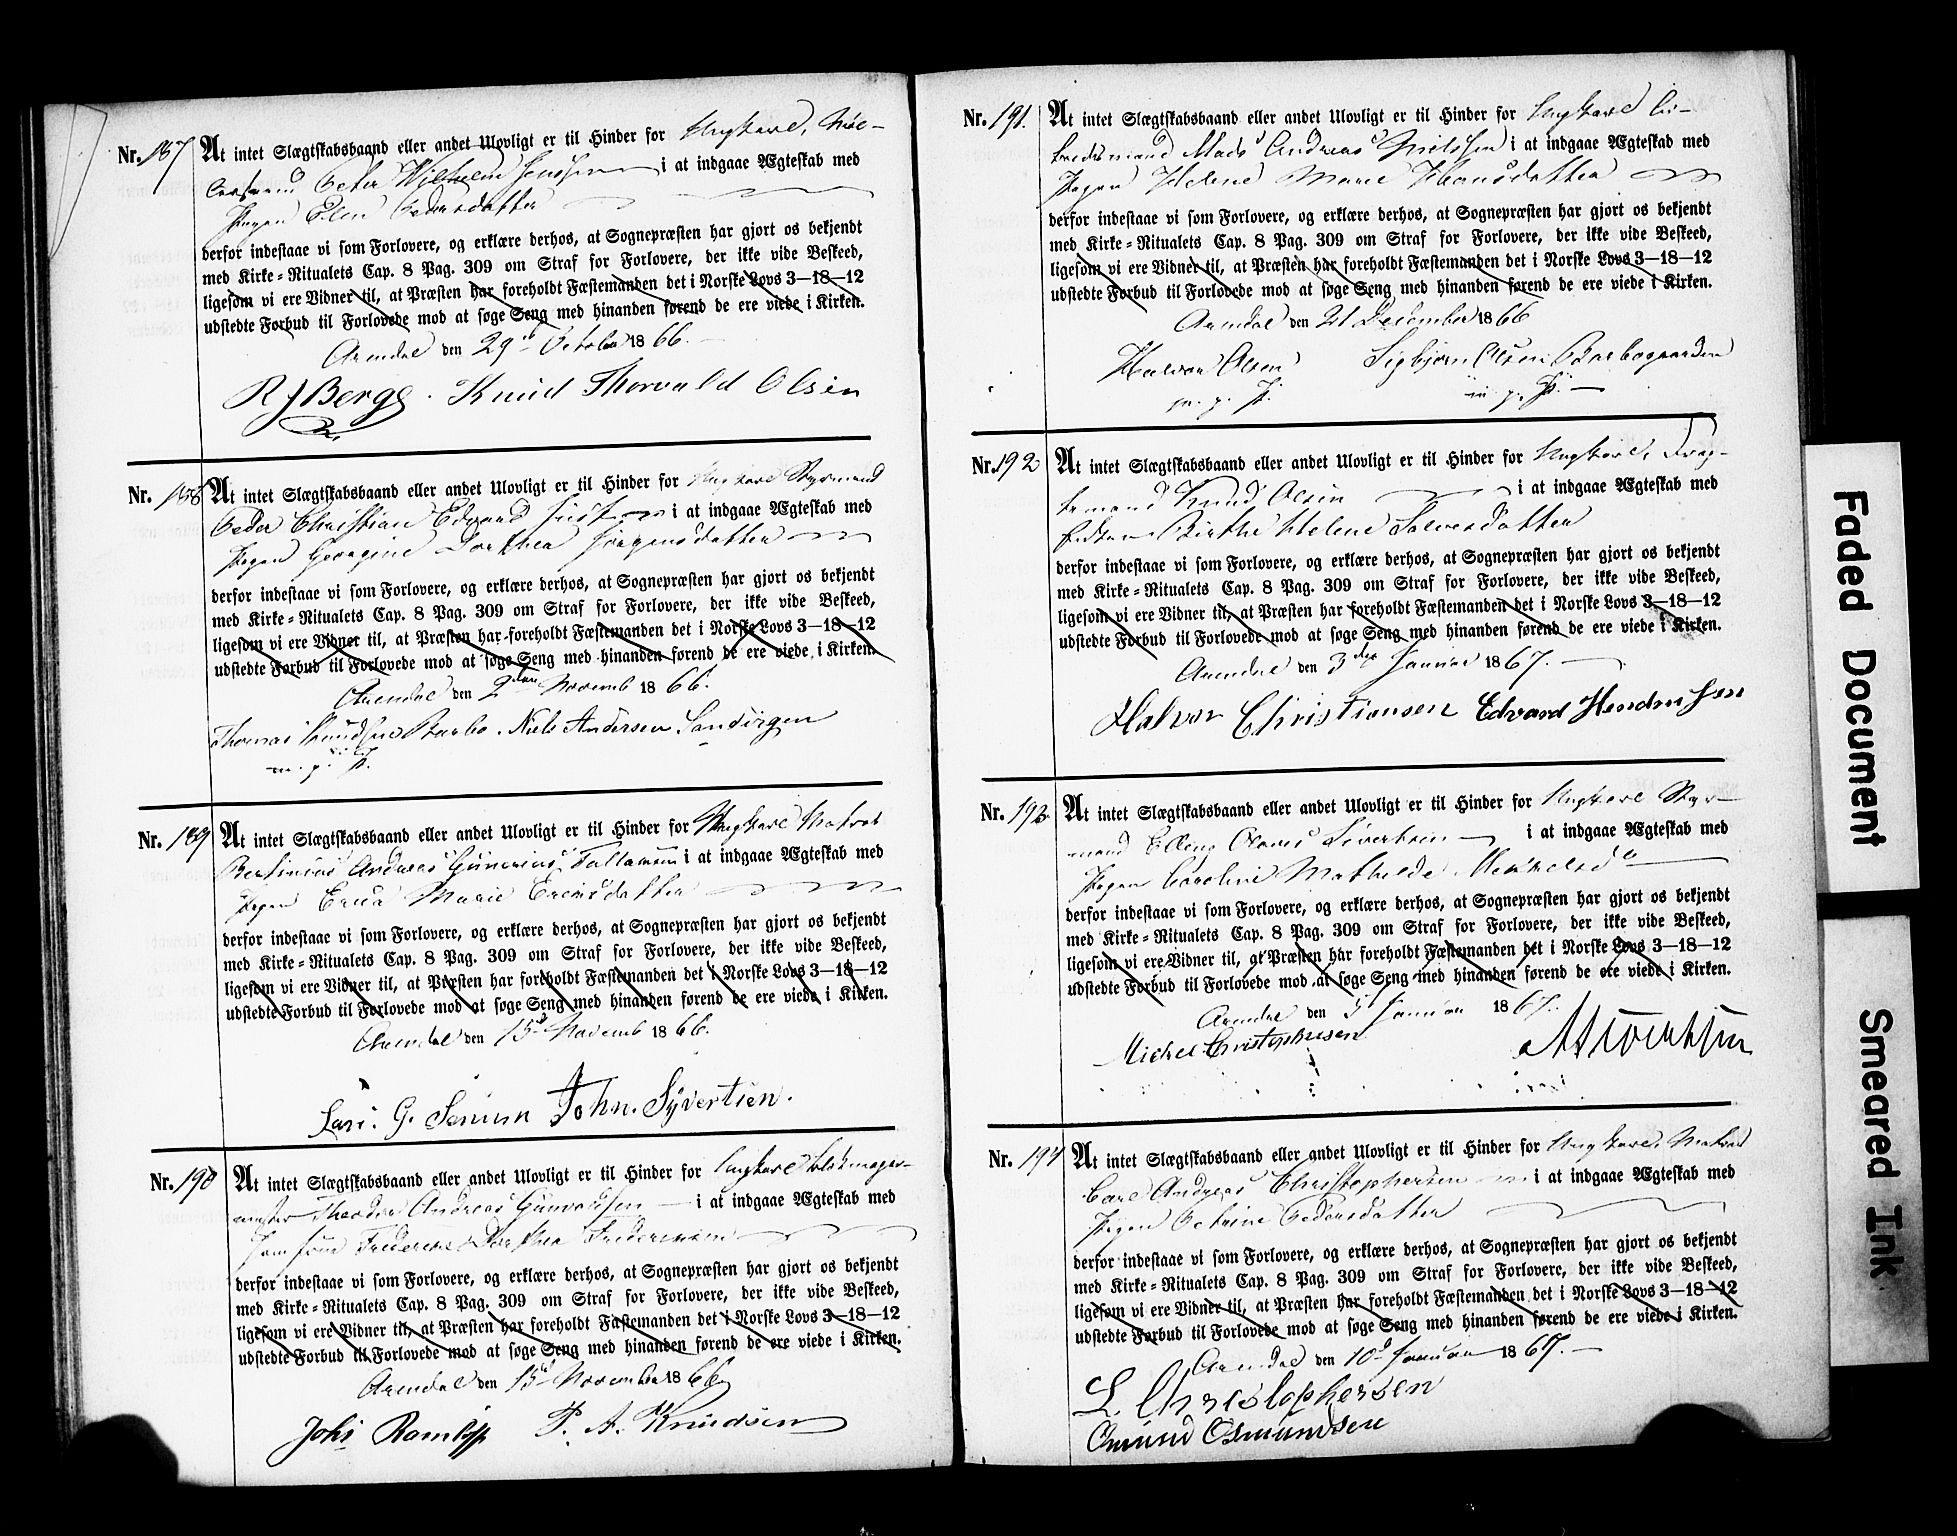 Nr. 187
At intet Slægtskabsbaand eller andet Ulovligt er til Hinder for Ungkarl,
Peter Wilhelm Jenssen i at indgaae Ægteskab med
Pigen Elen Pedersdatter
derfor indestaae vi som Forlovere, og erklære derhos, at Sognepræsten har gjort os bekjendt
med Kirke-Ritualets Cap. 8 Pag. 309 om Straf for Forlovere, der ikke vide Beskeed,
ligesom vi ere Vidner til, at Præsten har foreholdt Fæstemanden det i Norske Lovs 3—18—12
udstedte Forbud til Forlovede mod at søge Seng med hinanden førend de ere viede i Kirken.
Arendal den 29 October 1866.
R J Berge. Knud Thorvald Olsen
Nr. 188
At intet Slægtskabsbaand eller andet Ulovligt er til Hinder for Ungkarl Styrmand
Peder Christian Edvard Just i at indgaae Ægteskab med
Pigen Georgine Dorthea Jørgensdatter
derfor indestaae vi som Forlovere, og erklære derhos, at Sognepræsten har gjort os bekjendt
med Kirke-Ritualets Cap. 8 Pag. 309 om Straf for Forlovere, der ikke vide Beskeed,
ligesom vi ere Vidner til, at Præsten har foreholdt Fæstemanden det i Norske Lovs 3—18—12
udstedte Forbud til Forlovede mod at søge Seng med hinanden førend de ere viede i Kirken.
Arendal den 2den Novemb 1866.
Thomas Knudsen Barbo. Niels Andersen Sandvigen
m. p. P.
Nr. 189
At intet Slægtskabsbaand eller andet Ulovligt er til Hinder for Ungkarl Matros
Bertinius Andreas Gunerius Tallaksen i at indgaae Ægteskab med
Pigen Marie
derfor indestaae vi som Forlovere, og erklære derhos, at Sognepræsten har gjort os bekjendt
med Kirke-Ritualets Cap. 8 Pag. 309 om Straf for Forlovere, der ikke vide Beskeed,
ligesom vi ere Vidner til, at Præsten har foreholdt Fæstemanden det i Norske Lovs 3—18—12
udstedte Forbud til Forlovede mod at søge Seng med hinanden førend de ere viede i Kirken.
Arendal den 15d Novemb 1866.
Lars. G. John. Syvertsen.
Nr. 190
At intet Slægtskabsbaand eller andet Ulovligt er til Hinder for Ungkarl Blokmager-
mester Theodor Andreas Gunvaldsen i at indgaae Ægteskab med
Jomfrue Dorthea
derfor indestaae vi som Forlovere, og erklære derhos, at Sognepræsten har gjort os bekjendt
med Kirke-Ritualets Cap. 8 Pag. 309 om Straf for Forlovere, der ikke vide Beskeed,
ligesom vi ere Vidner til, at Præsten har foreholdt Fæstemanden det i Norske Lovs 3—18—12
udstedte Forbud til Forlovede mod at søge Seng med hinanden førend de ere viede i Kirken.
Arendal den 15d November 1866
Johs P. A. Knudsen
Nr. 191.
At intet Slægtskabsbaand eller andet Ulovligt er til Hinder for Ungkarl Ar-
beidsmand Mads Andreas Nielssen i at indgaae Ægteskab med
Pigen Helene Marie Hansdatter
derfor indestaae vi som Forlovere, og erklære derhos, at Sognepræsten har gjort os bekjendt
med Kirke-Ritualets Cap. 8 Pag. 309 om Straf for Forlovere, der ikke vide Beskeed,
ligesom vi ere Vidner til, at Præsten har foreholdt Fæstemanden det i Norske Lovs 3—18—12
udstedte Forbud til Forlovede mod at søge Seng med hinanden førend de ere viede i Kirken.
Arendal den 21 December 1866
Halvor Olsen Sigbjørn Olsen Barbogaarden
m. p. P. m. p. P.
Nr. 192
At intet Slægtskabsbaand eller andet Ulovligt er til Hinder for Ungkarl, Drag-
Knud Olsen i at indgaae Ægteskab med
Birthe Helene Salvesdatter
derfor indestaae vi som Forlovere, og erklære derhos, at Sognepræsten har gjort os bekjendt
med Kirke-Ritualets Cap. 8 Pag. 309 om Straf for Forlovere, der ikke vide Beskeed,
ligesom vi ere Vidner til, at Præsten har foreholdt Fæstemanden det i Norske Lovs 3—18—12
udstedte Forbud til Forlovede mod at søge Seng med hinanden førend de ere viede i Kirken.
Arendal den 3die Januar 1867.
Halvor Christiansen Edvard Hendricksen
Nr. 193
At intet Slægtskabsbaand eller andet Ulovligt er til Hinder for Ungkarl Styr-
mand Elling Olaves Sivertsen i at indgaae Ægteskab med
Pigen Caroline Mathilde
derfor indestaae vi som Forlovere, og erklære derhos, at Sognepræsten har gjort os bekjendt
med Kirke-Ritualets Cap. 8 Pag. 309 om Straf for Forlovere, der ikke vide Beskeed,
ligesom vi ere Vidner til, at Præsten har foreholdt Fæstemanden det i Norske Lovs 3—18—12
udstedte Forbud til Forlovede mod at søge Seng med hinanden førend de ere viede i Kirken.
Arendal den 5 Januar 1867.
Michel Christophersen
Nr. 194
At intet Slægtskabsbaand eller andet Ulovligt er til Hinder for Ungkarl, Matros
Carl Andreas Christophersen i at indgaae Ægteskab med
Pigen Petrine Pedersdatter
derfor indestaae vi som Forlovere, og erklære derhos, at Sognepræsten har gjort os bekjendt
med Kirke-Ritualets Cap. 8 Pag. 309 om Straf for Forlovere, der ikke vide Beskeed,
ligesom vi ere Vidner til, at Præsten har foreholdt Fæstemanden det i Norske Lovs 3—18—12
udstedte Forbud til Forlovede mod at søge Seng med hinanden førend de ere viede i Kirken.
Arendal den 10d Januar 1867.
L. Christophersen
Omund Osmundsen
Faded Document
Smeared Ink